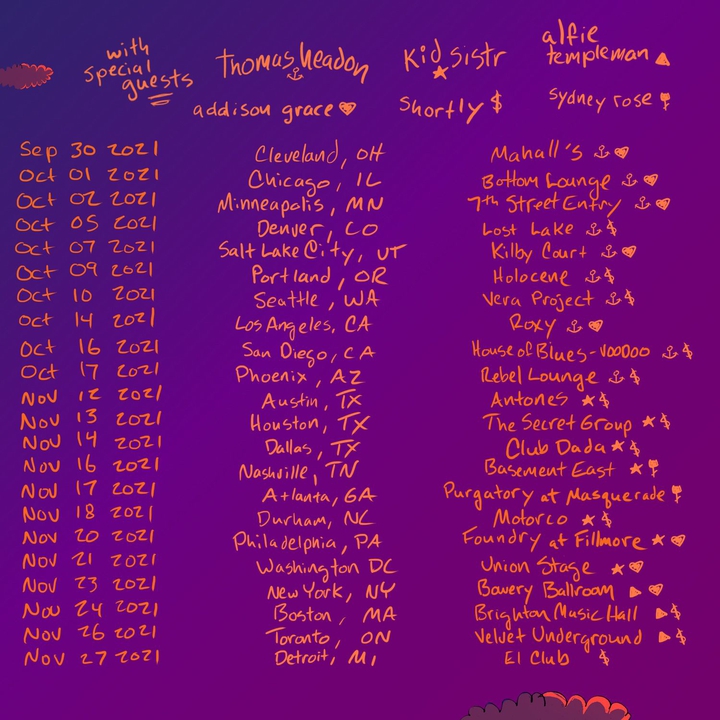 with special guests
thomas headon ⚓
Kid sistr ★
alfie templeman ▲
addison grace ♥
Shortly $
sydney rose 🌷
Sep 30 2021 Cleveland, OH Mahall's ⚓ ♥
Oct 01 2021 Chicago, IL Bottom Lounge ⚓ ♥
Oct 02 2021 Minneapolis, MN 7th Street Entry ⚓ ♥
Oct 05 2021 Denver, CO Lost Lake ⚓ $
Oct 07 2021 Salt Lake City, UT Kilby Court ⚓ ♥
Oct 09 2021 Portland, OR Holocene ⚓ $
Oct 10 2021 Seattle, WA Vera Project ⚓ $
Oct 14 2021 Los Angeles, CA Roxy ⚓ ♥
Oct 16 2021 San Diego, CA House of Blues-VOODOO ⚓ $
Oct 17 2021 Phoenix, AZ Rebel Lounge ⚓ $
Nov 12 2021 Austin, TX Antones ★ $
Nov 13 2021 Houston, TX The Secret Group ★ $
Nov 14 2021 Dallas, TX Club Dada ★ $
Nov 16 2021 Nashville, TN Basement East ★ 🌷
Nov 17 2021 Atlanta, GA Purgatory at Masquerade 🌷
Nov 18 2021 Durham, NC Motorco ★ $
Nov 20 2021 Philadelphia, PA Foundry at Fillmore ★ ♥
Nov 21 2021 Washington DC Union Stage ★ ♥
Nov 23 2021 New York, NY Bowery Ballroom ▲ ♥
Nov 24 2021 Boston, MA Brighton Music Hall ▲ $
Nov 26 2021 Toronto, ON Velvet Underground ▲ $
Nov 27 2021 Detroit, MI El Club $